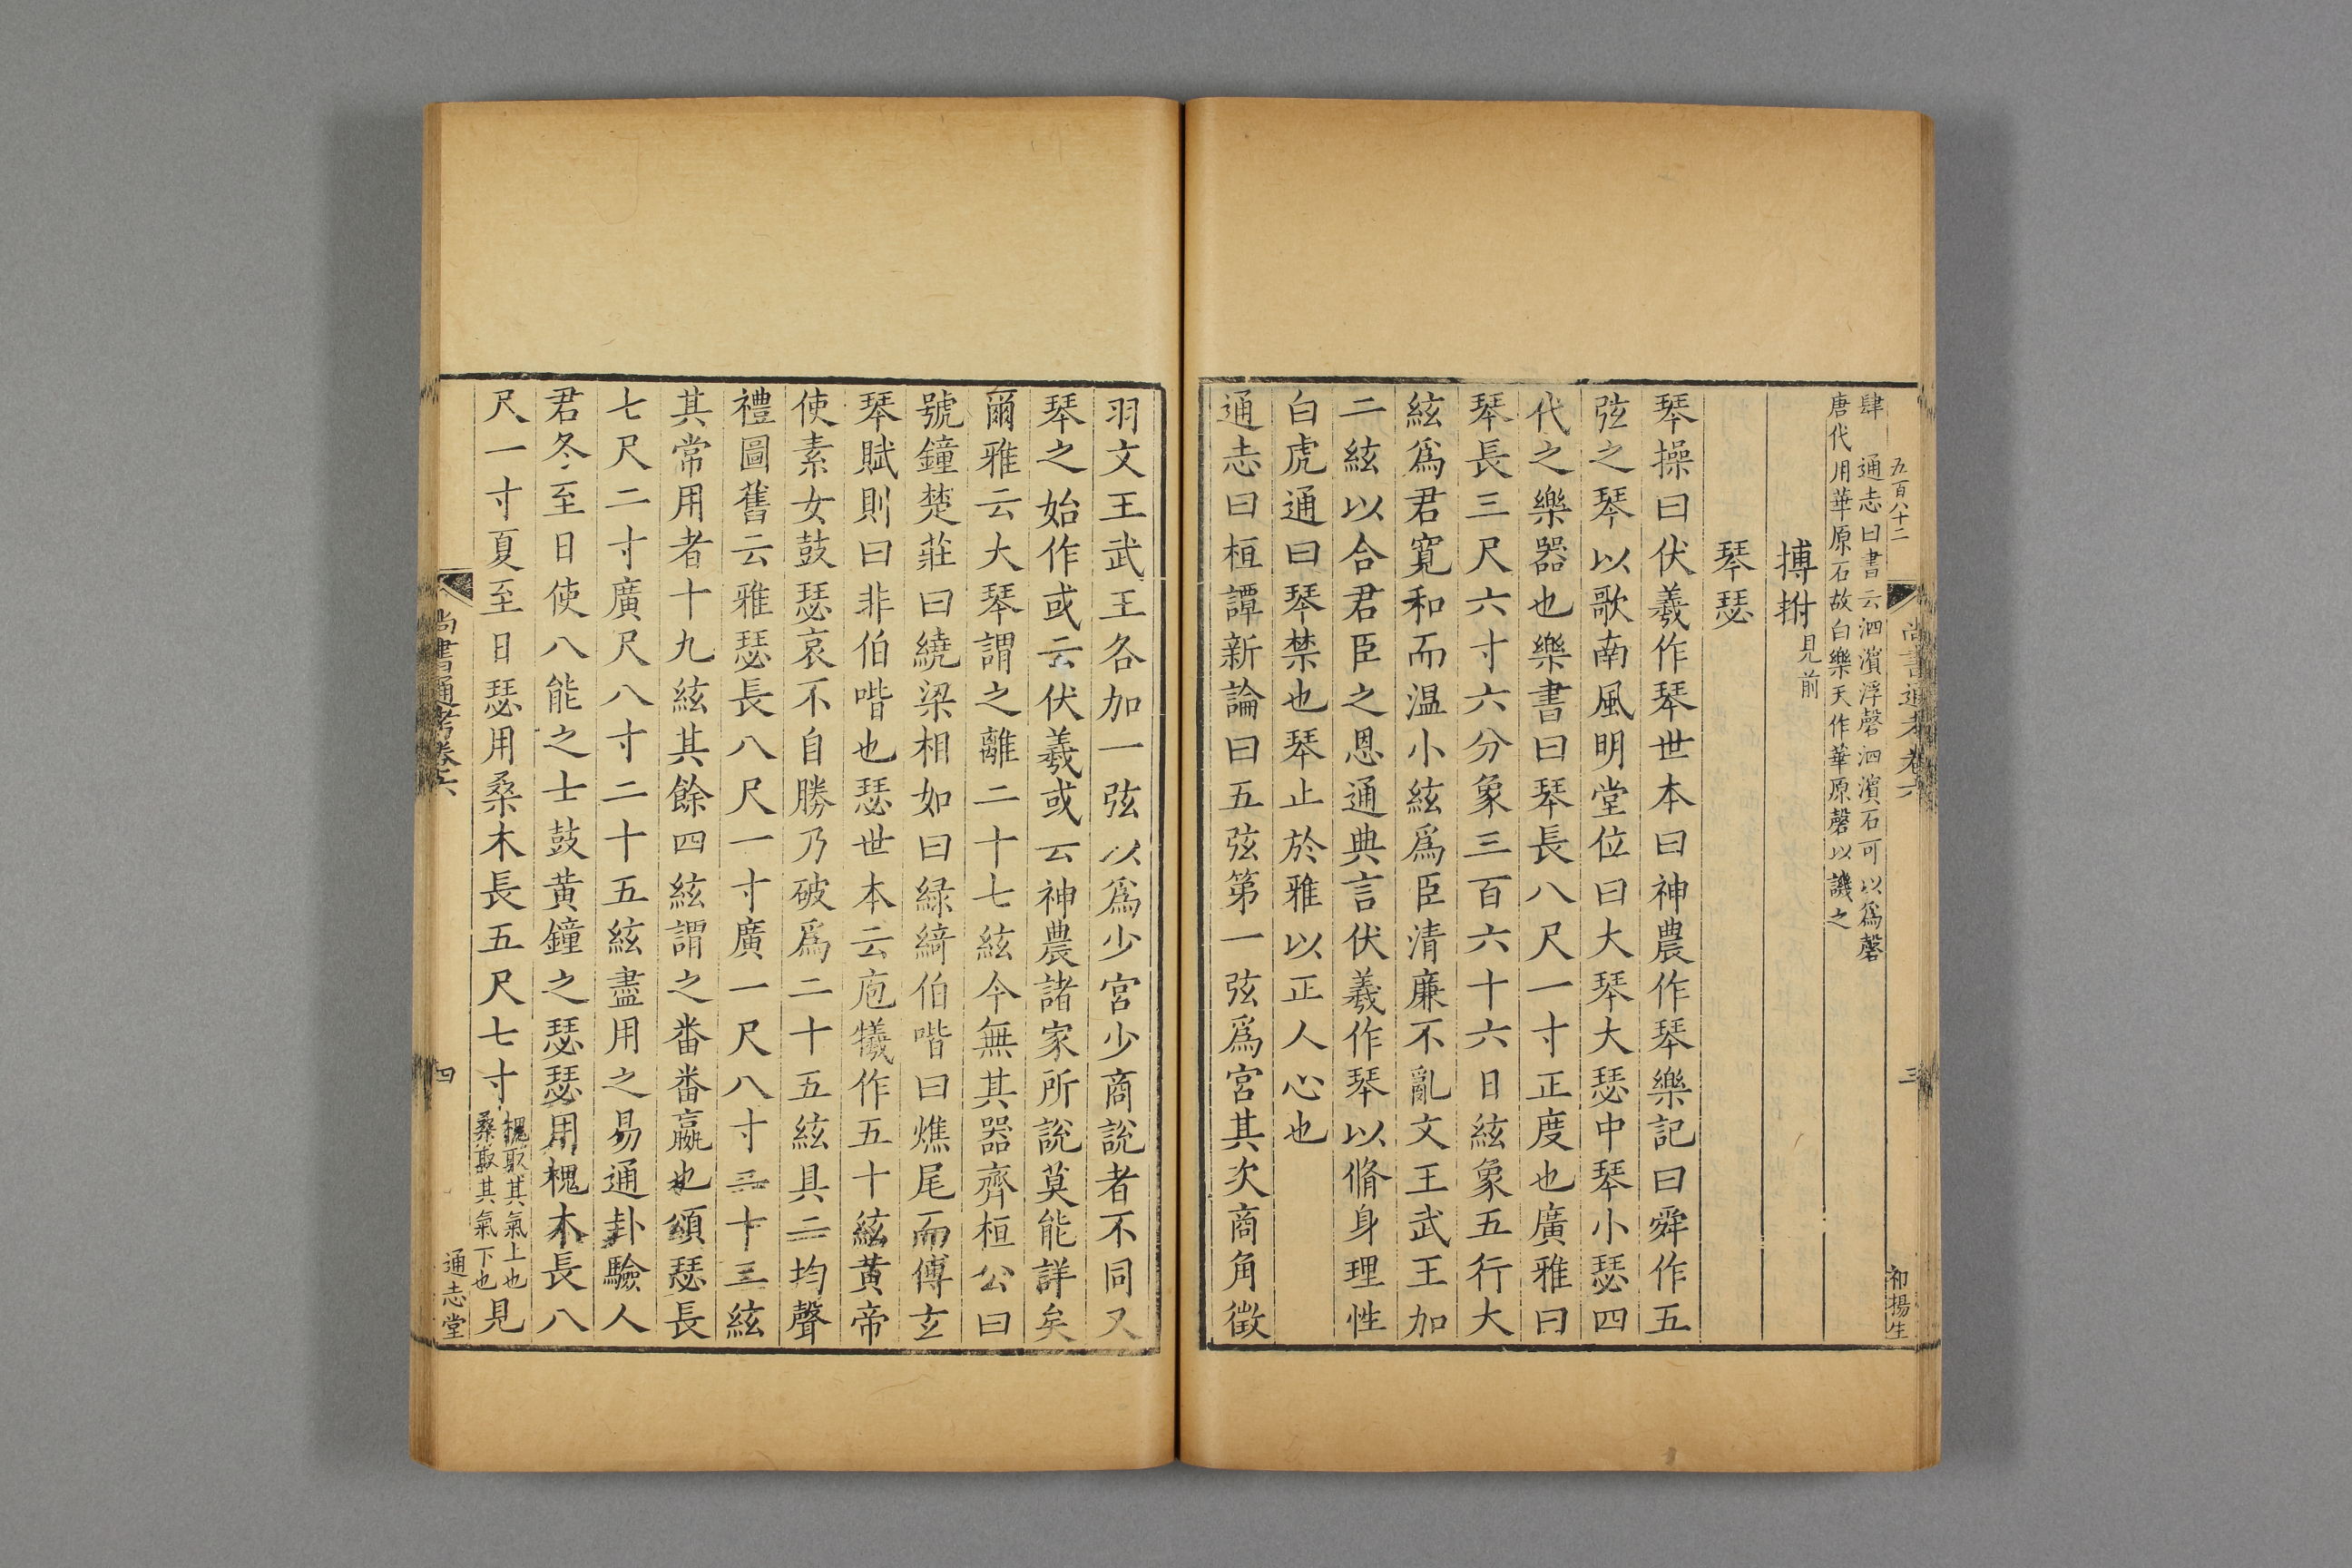 五百八十二
尚書通考卷六
三
初揚生
肆 通志曰書云泗濵浮磬泗濵石可以爲磬
唐代用華原石故白樂天作華原磬以譏之
搏拊見前
琴瑟
琴操曰伏羲作琴世本曰神農作琴樂記曰舜作五
弦之琴以歌南風明堂位曰大琴大瑟中琴小瑟四
代之樂器也樂書曰琴長八尺一寸正度也廣雅曰
琴長三尺六寸六分象三百六十六日絃象五行大
絃爲君寛和而温小絃爲臣清廉不亂文王武王加
二絃以合君臣之恩通典言伏羲作琴以脩身理性
白虎通曰琴禁也琴止於雅以正人心也
通志曰桓譚新論曰五弦第一弦爲宮其次商角徵
羽文王武王各加一弦以爲少宮少商說者不同又
琴之始作或云伏羲或云神農諸家所說莫能詳矣
爾雅云大琴謂之離二十七絃今無其器齊桓公曰
號鐘楚莊曰繞梁相如曰緑綺伯喈曰燋尾而傅玄
琴賦則曰非伯喈也瑟世本云庖犧作五十絃黃帝
使素女鼓瑟哀不自勝乃破爲二十五絃具二均聲
禮圖舊云雅瑟長八尺一寸廣一尺八寸二十三絃
其常用者十九絃其餘四絃謂之番番嬴也頌瑟長
七尺二寸廣尺八寸二十五絃盡用之易通卦驗人
君冬至日使八能之士鼓黄鐘之瑟瑟用槐木長八
尺一寸夏至日瑟用桑木長五尺七寸槐取其氣上也桑取其氣下也見
尚書通考卷六
四
通志堂